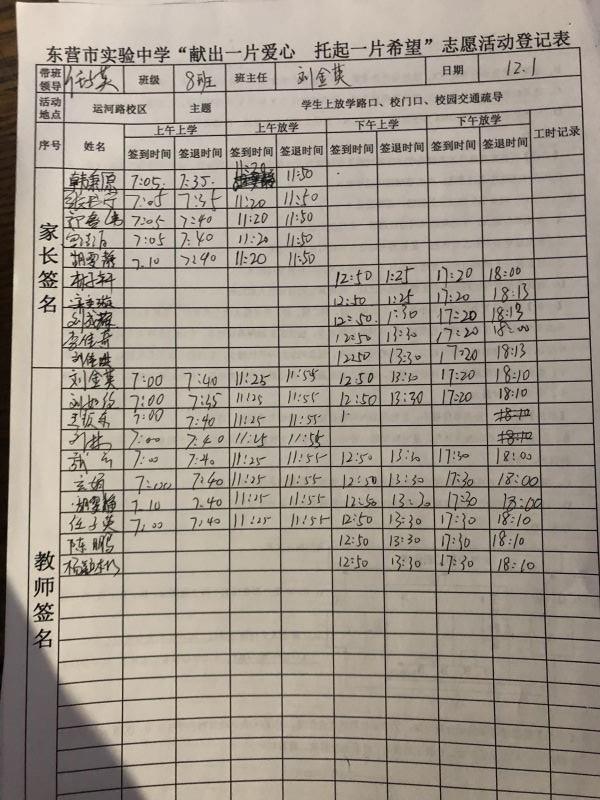 东营市实验中学“献出一片爱心　托起一片希望”志愿活动登记表
带班领导 班级 8班 班主任 刘金英 日期 12.1
活动地点 运河路校区 主题 学生上放学路口、校门口、校园交通疏导
序号 姓名 上午上学 上午放学 下午上学 下午放学 工时记录
签到时间 签退时间 签到时间 签退时间 签到时间 签退时间 签到时间 签退时间
家长签名
7:05 7:35 11:20 11:50
7:05 7:35 11:20 11:50
7:05 7:40 11:20 11:50
7:05 7:40 11:20 11:50
胡雯静 7:10 7:40 11:20 11:50
12:50 1:25 17:20 18:00
12:50 1:25 17:20 18:13
12:50 1:30 17:20 18:13
李佳奇 12:50 13:30 17:20 18:00
12:50 13:30 17:20 18:13
教师签名
刘金英 7:00 7:40 11:25 11:55 12:50 13:30 17:20 18:10
7:00 7:35 11:25 11:55 12:50 13:30 17:20 18:10
7:00 7:40 11:25 11:55
7:00 7:40 11:25 11:55
7:00 7:40 11:25 11:55 12:50 13:30 17:30 18:00
7:40 11:25 11:55 12:50 13:30 17:30 18:00
胡雯静 7:10 7:40 11:25 11:55 12:50 13:30 17:30 18:00
任子英 7:00 7:40 11:25 11:55 12:50 13:30 17:30 18:10
陈鹏 12:50 13:30 17:30 18:10
12:50 13:30 17:30 18:10